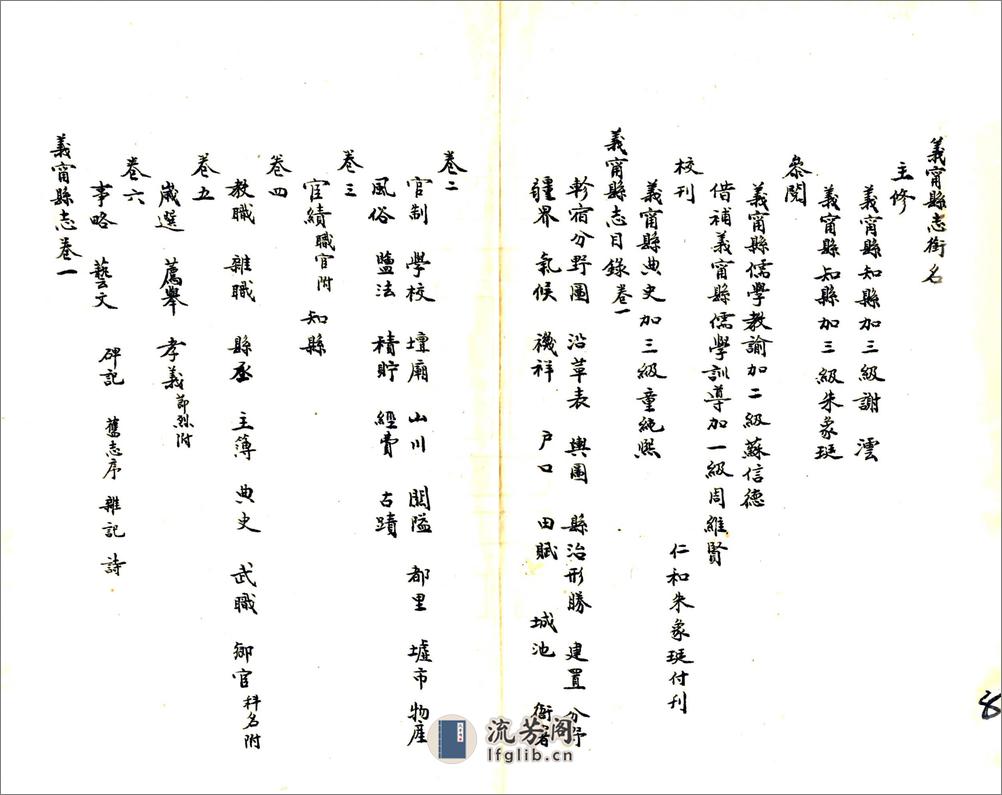 義甯縣志銜名
主修
義甯縣知縣加三級謝　澐
義甯縣知縣加三級朱象珽
叅閱
義甯縣儒學教諭加二級蘇信德
借補義甯縣儒學訓導加一級周維賢
校刊　仁和朱象珽付刊
義甯縣典史加三級童純熙
義甯縣志目錄卷一
軫宿分野圖　沿革表　輿圖　縣治形勝　建置　分野
疆界　氣候　禨祥　戶口　田賦　城池　衙署
卷二
官制　學校　壇廟　山川　關隘　都里　墟市　物產
風俗　鹽法　積貯　經費　古蹟
卷三
宦績職官附　知縣
卷四
教職　雜職　縣丞　主簿　典史　武職　鄉官科名附
卷五
歲選　薦舉　孝義節烈附
卷六
事略　藝文　碑記　舊志序　雜記　詩
義甯縣志卷一
8
流芳阁
lfglib.cn